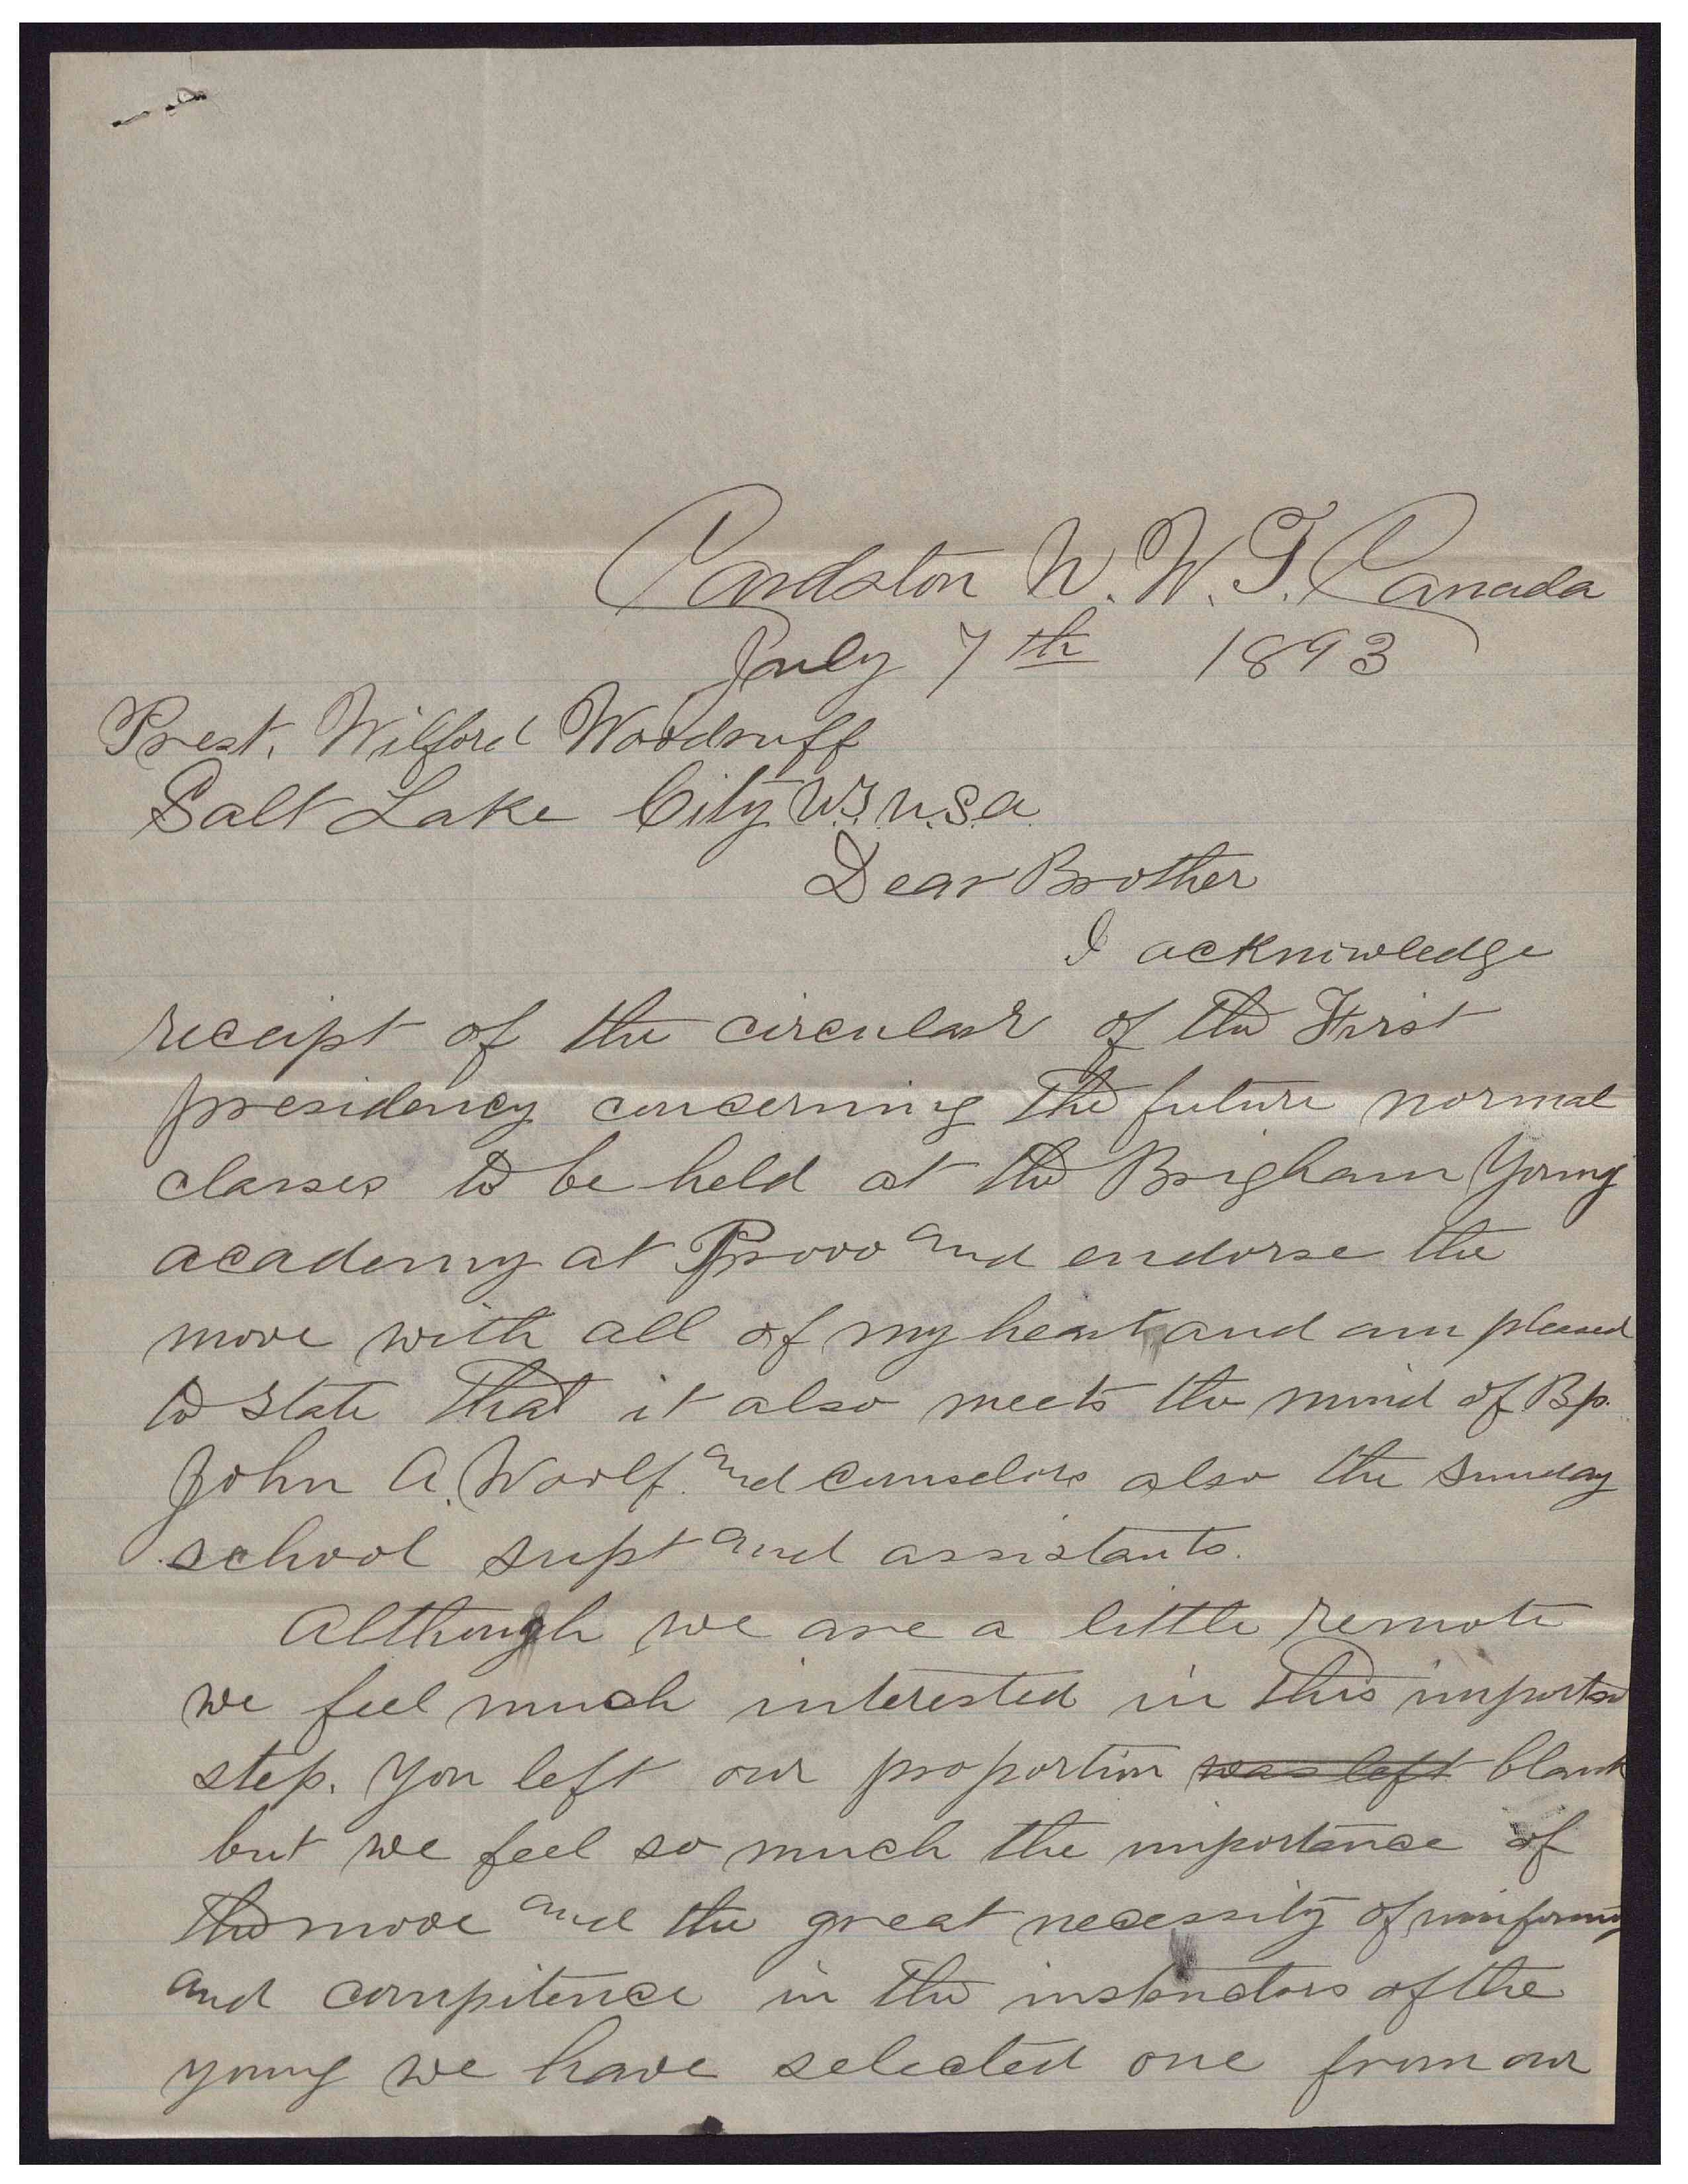 Cardston N. W. T. Canada
July 7th 1893
Prest. Wilford Woodruff
Salt Lake City U.T. U.S.a
Dear Brother
I acknowledge
receipt of the circular of the First
presidency concerning the future normal
classes to be held at the Brigham Young
academy at Provo and endorse the
move with all of my heart and am pleased
to state that it also meets the mind of Bp.
John A. Woolf. and counselors also the Sunday
school supt and assistants.
Although we are a little remote
we feel much interested in this important
step. You left our proportion was left blank
but we feel so much the importance of
the move and the great necessity of uniformity
and compitence in the instructors of the
young we have selected one from our